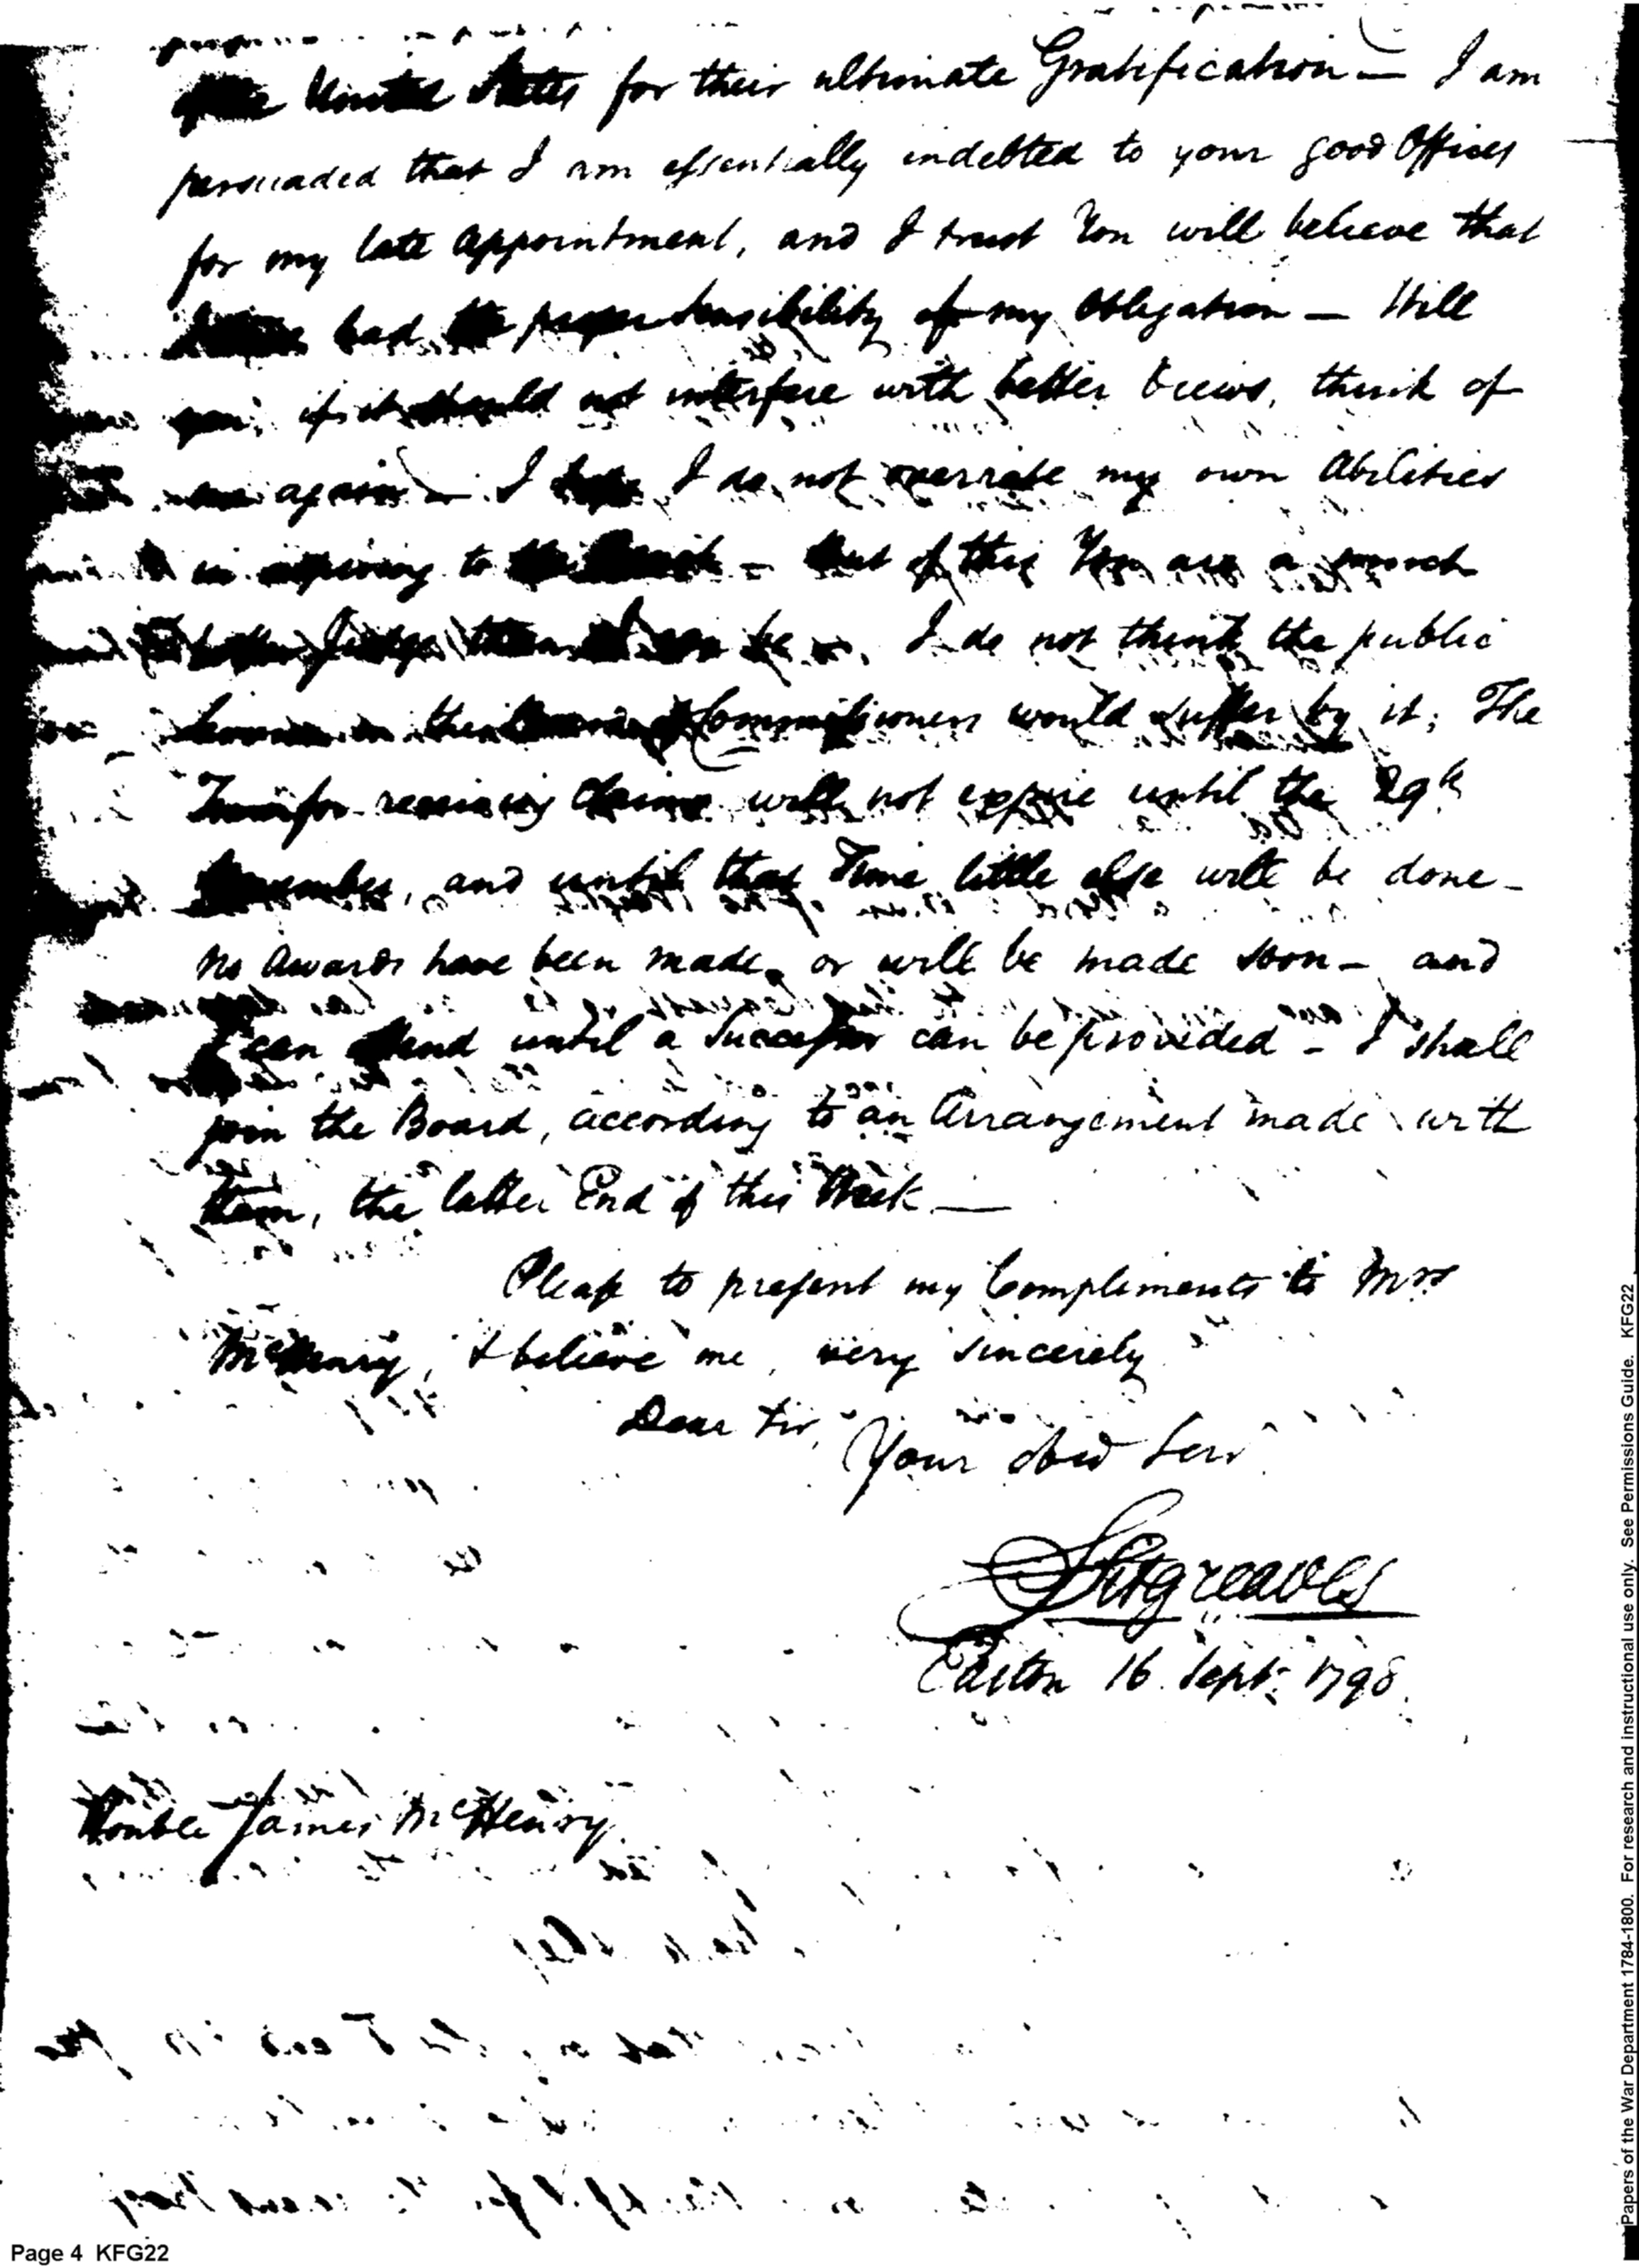 United States for their ultimate Gratification — I am
persuaded that I am essentially indebted to your good Offices
for my late Appointment, and I trust You will believe that
had the proper Sensibility of my Obligation — Will
you, if it should not interfere with better Views, think of
me again — I hope I do not overrate my own Abilities
in aspiring to the Bench — But of this You are a much
better Judge than I can be —. I do not think the public
in the Commissioners would suffer by it; The
Time for receiving Claims will not expire until the 29th
November, and until that Time little else will be done —
No Awards have been made, or will be made soon — and
I can attend until a Successor can be provided — I shall
join the Board, according to an Arrangement made with
them, the latter End of this Week —
Please to present my Compliments to Mrs
McHenry, & believe me, very sincerely
Dear Sir,
Your obed Serv
SSitgreaves
Easton 16. Sept: 1798.
Honble James McHenry
Page 4 KFG22
Papers of the War Department 1784-1800. For research and instructional use only. See Permissions Guide. KFG22